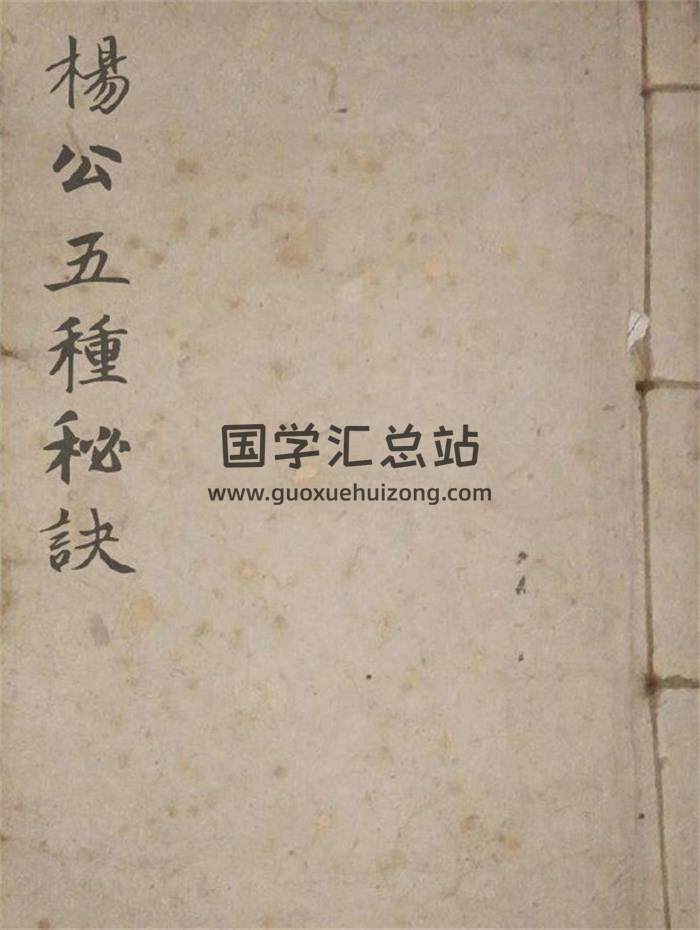 楊公五種秘訣
国学汇总站
www.guoxuehuizong.com